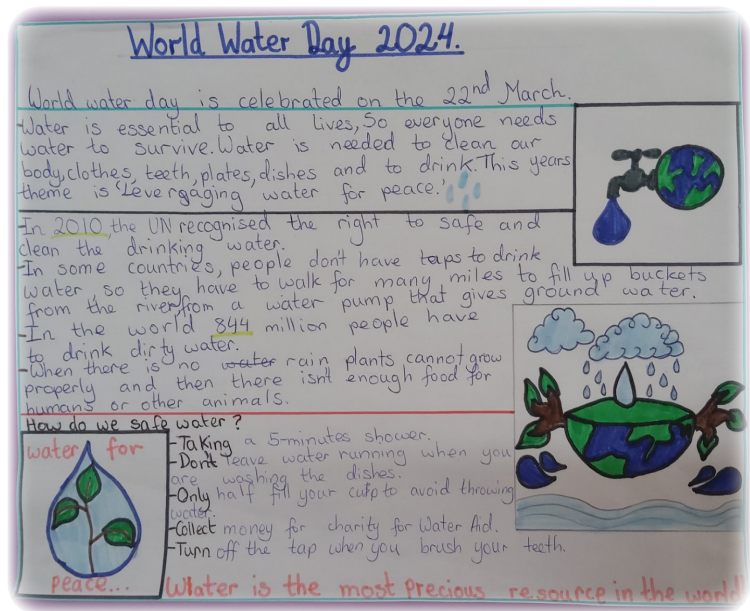 World Water Day 2024.
World water day is celebrated on the 22nd March.
-Water is essential to all lives, So everyone needs
water to survive. Water is needed to clean our
body, clothes, teeth, plates, dishes and to drink. This years
theme is 'Levergaging water for peace.'
-In 2010, the UN recognised the right to safe and
clean the drinking water.
-In some countries, people don't have taps to drink
water, so they have to walk for many miles to fill up buckets
from the river, from a water pump that gives ground water.
-In the world 844 million people have
to drink dirty water.
-When there is no water rain plants cannot grow
properly and then there isn't enough food for
humans or other animals.
How do we safe water?
-Taking a 5-minutes shower.
-Don't leave water running when you
are washing the dishes.
-Only half fill your cup to avoid throwing
water.
-Collect money for charity for Water Aid.
-Turn off the tap when you brush your teeth.
water for
peace...
Water is the most precious resource in the world